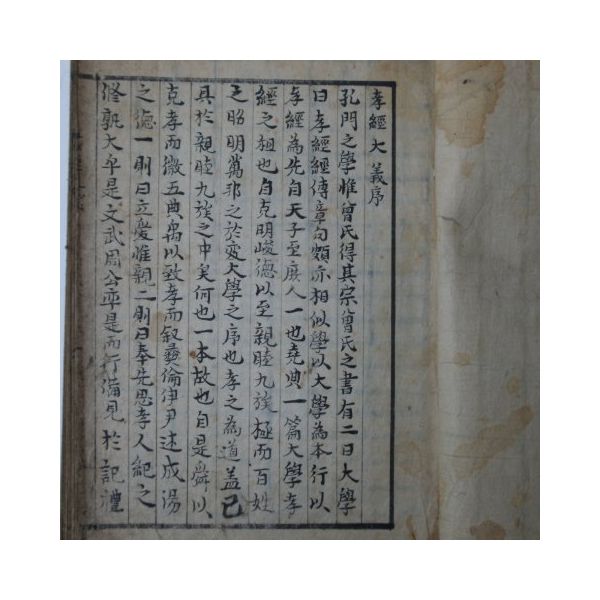 孝經大義序
孔門之學惟曾氏得其宗曾氏之書有二曰大學
曰孝經經傳章句頗亦相似學以大學為本行以
孝經為先自天子至庶人一也堯典一篇大學孝
經之祖也自克明峻德以至親睦九族極而百姓
之昭明萬邦之於變大學之序也孝之為道蓋已
具於親睦九族之中矣何也一本故也自是舜以
克孝而徽五典禹以致孝而敘彝倫伊尹述成湯
之德一則曰立愛惟親二則曰奉先思孝人紀之
修孰大乎是文武周公率是而行備見於記禮